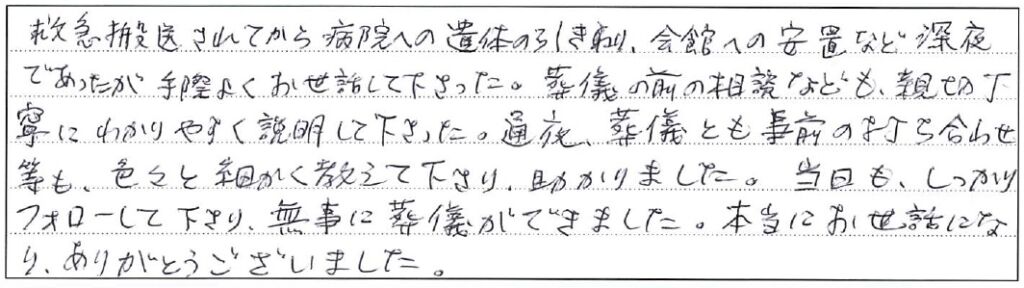 救急搬送されてから病院への遺体の引き取り、会館への安置など深夜
であったが手際よくお世話して下さった。葬儀の前の相談なども、親切丁
寧にわかりやすく説明して下さった。通夜、葬儀とも事前の打ち合わせ
等も、色々と細かく教えて下さり、助かりました。当日も、しっかり
フォローして下さり、無事に葬儀ができました。本当にお世話にな
り、ありがとうございました。